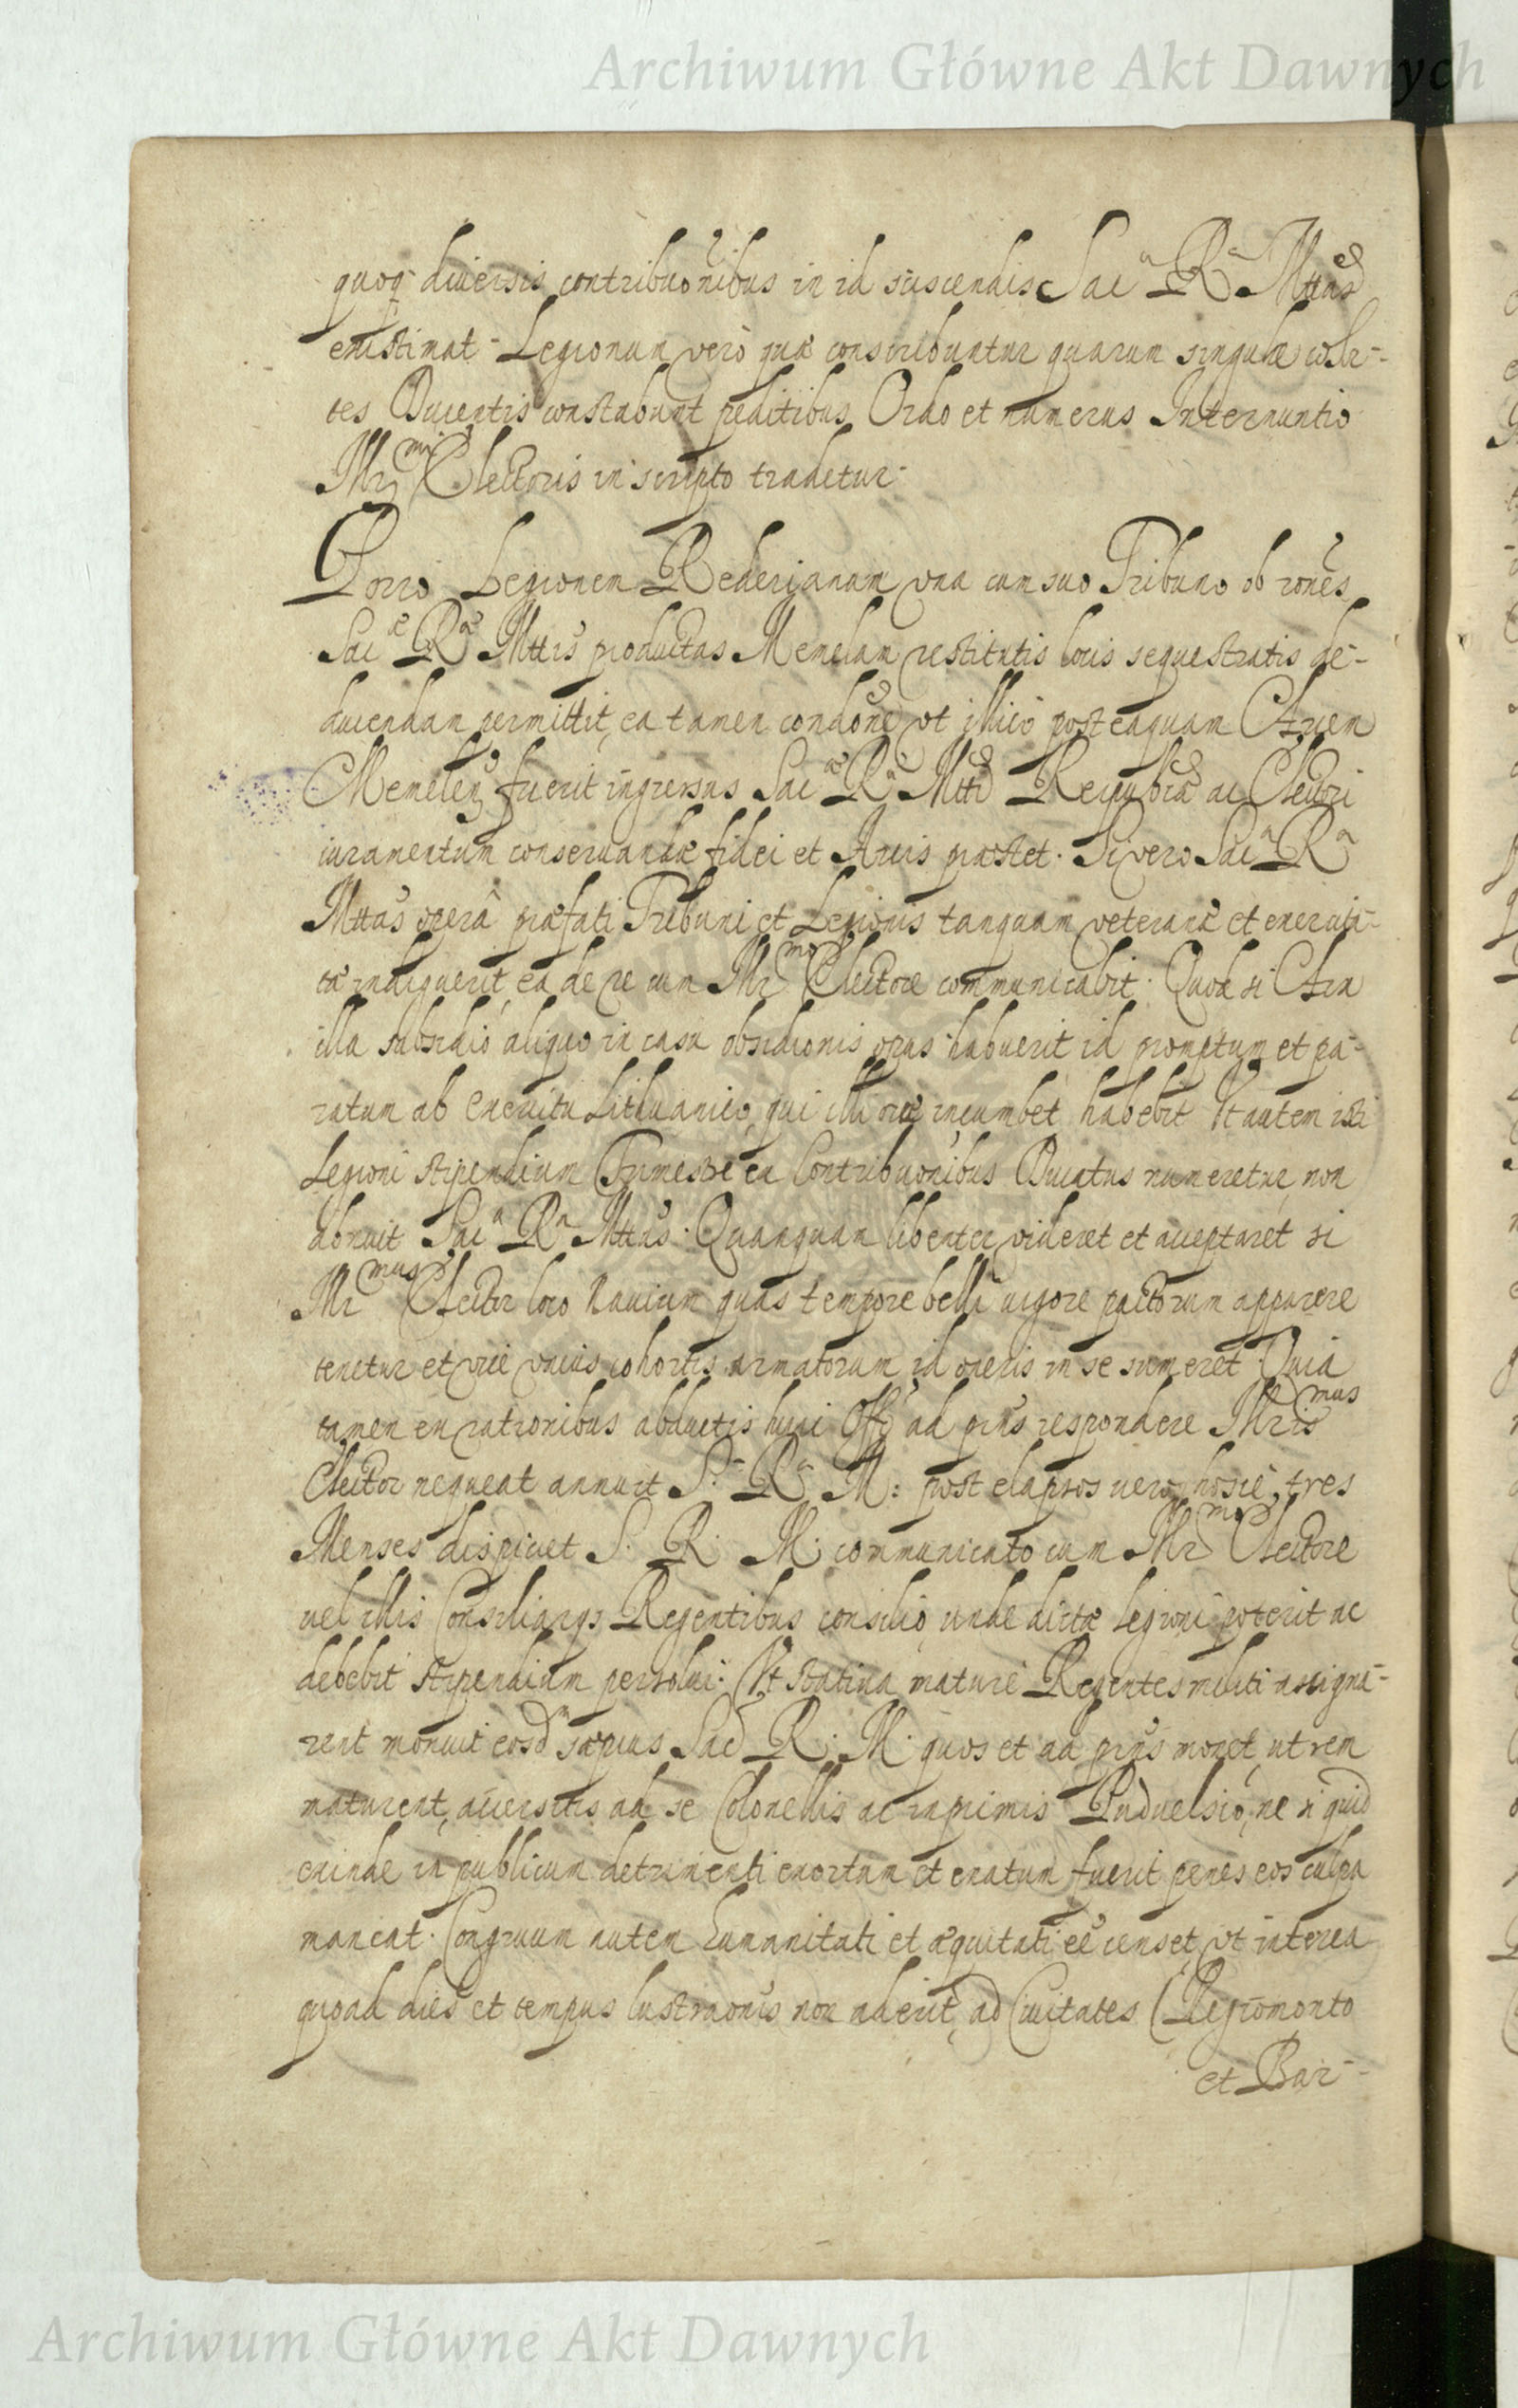 Archiwum Główne Akt Dawnych
quoq diuersis contribuonibus in id suscendis Sac^a R^a Mttas
existimat. Legionum verò quæ conscribuntur quarum singulæ cohor-
tes Ducentis constabunt peditibus, Ordo et numerus Internuntio
Illr^mi Electoris in scripto tradetur.
Porro Legionem Rederianam vna cum suo Tribuno ob rones
Sac^æ R^æ Mttis productas Memelam restitutis locis sequestratis de-
ducendam permittit, ea tamen condone vt illico posteaquam Arcem
Memelen fuerit ingressus Sac^æ R^æ Mtti Reipublcæ ac Electori
iuramentum conseruandæ fidei et Arcis præstet. Si vero Sac^a R^a
Mttas operâ præfati Tribuni et Legionis tanquam veteranæ et exercita-
tæ indiguerit, ea de re cum Illr^mo Electore communicabit. Quod si Arx
illa subsidio aliquo in casu obsidionis opus habuerit id promptum et pa-
ratum ab exercitu Lithuanico, qui illi oræ incumbet, habebit. Vt autem isti
Legioni stipendium Trimestre ex Contribuonibus Ducatus numeretur, non
abnuit Sac^a R^a Mttas. Quanquam libenter videret et acceptaret si
Illr^mus Elector loco Nauium quas tempore belli uigore pactorum apparere
tenetur et vice vnius cohortis armatorum id oneris in se sumeret. Quia
tamen ex rationibus adductis huic Offo ad prns respondere Illris^mus
Elector nequeat annuit S. R. M: post elapsos uero hosce tres
Menses dispiciet S. R. M. communicato cum Illr^mo Electore
uel illis Consiliarys Regentibus consilio, unde dictæ legioni poterit ac
debebit stipendium persolui. Vt statiua mature Regentes militi assigna-
rent monuit eosd^m sæpius Sac R. M. quos et ad prns monet, ut rem
maturent, accersitis ad se Colonellis ac inprimis Puduelsio, ne si quid
exinde in publicum detrimenti exortum et enatum fuerit penes eos culpa
maneat. Congruum autem humanitati et æquitati ee censet, vt interea
quoad dies et tempus lustraonis non aderit, ad Ciuitates Regiomonto
et Bar-
Archiwum Główne Akt Dawnych